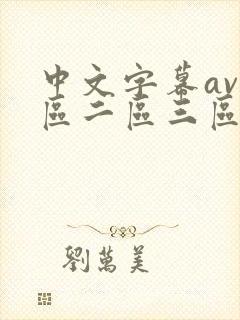 中文字幕av
區二區三區
劉萬美